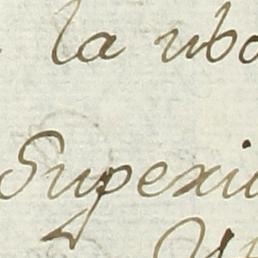 la ubo
Superiu